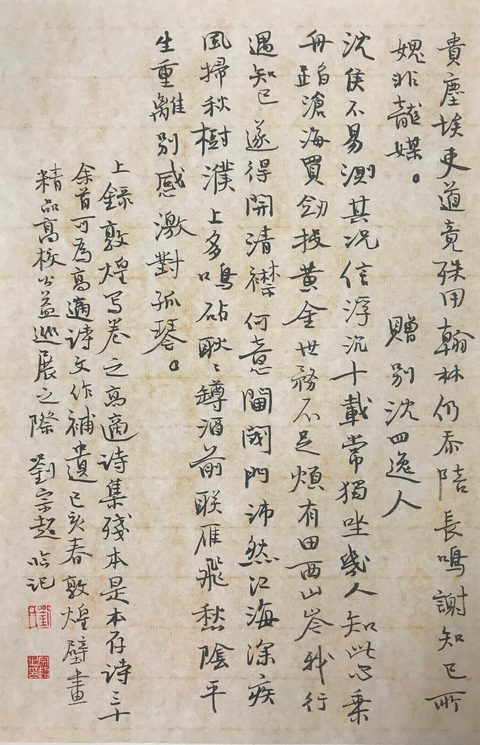 貴塵埃吏道竟殊用翰林仍忝陪長鳴謝知己所
媿非龍媒。 贈別沈四逸人
沈侯不易測其況信浮沉十載常獨坐幾人知此心乘
舟蹈滄海買劒投黃金世務不足煩有田西山岑我行
遇知己遂得開清襟何意閫閾門沛然江海深疾
風掃秋樹濮上多鳴砧耿々罇酒前聯雁飛愁陰平
生重離別感激對孤琴。
上錄敦煌写卷之高適詩集殘本是本存詩三十
余首可為高適詩文作補遺己亥春敦煌壁畫
精品高校公益巡展之際劉宗超臨記